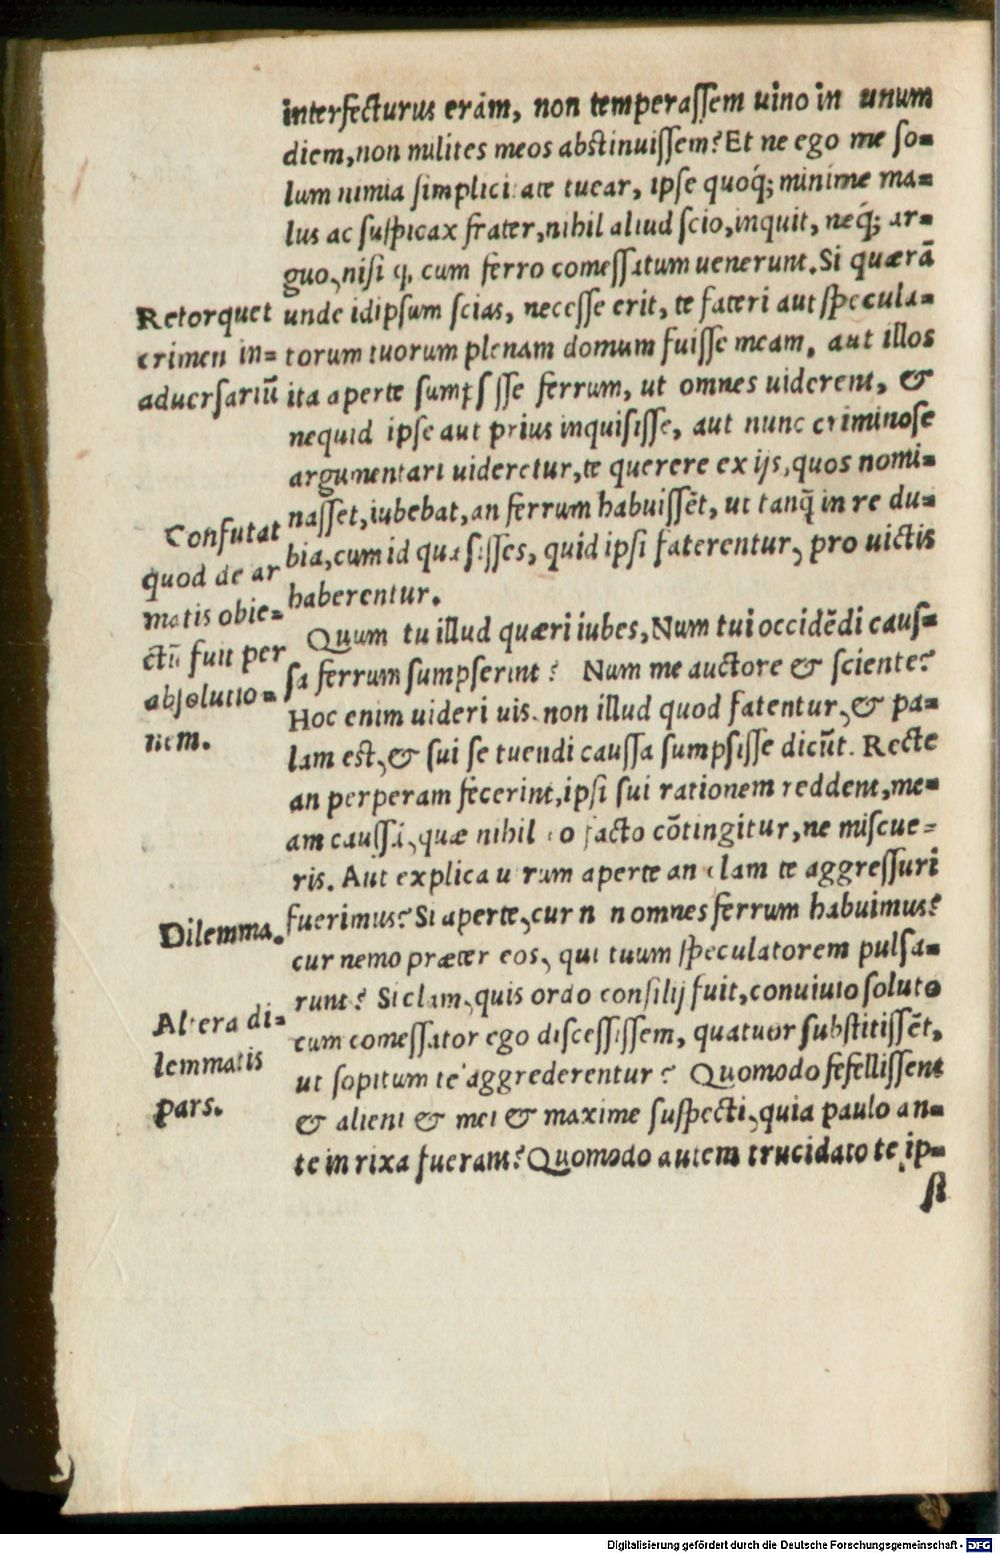 interfecturus erám, non temperassem uino in unum
diem, non milites meos abstinuissem? Et ne ego me so-
lum nimia simplicitate tuear, ipse quoq́; minime ma-
lus ac suspicax frater, nihil aliud scio, inquit, neq́; ar-
guo, nisi q, cum ferro comessatum uenerunt. Si quærā
unde idipsum scias, necesse erit, te fateri aut specula-
torum tuorum plenam domum fuisse meam, aut illos
ita aperte sumpsisse ferrum, ut omnes uiderent, &
nequid ipse aut prius inquisisse, aut nunc criminose
argumentari uideretur, te querere ex ijs, quos nomi-
nasset, iubebat, an ferrum habuissēt, ut tanq̄ in re du-
bia, cum id quæsisses, quid ipsi faterentur, pro uictis
haberentur.
Quum tu illud quæri iubes, Num tui occidēdi caus-
sa ferrum sumpserint? Num me auctore & sciente?
Hoc enim uideri uis. non illud quod fatentur, & pa-
lam est, & sui se tuendi caussa sumpsisse dicūt. Recte
an perperam fecerint, ipsi sui rationem reddent, me-
am caussā, quæ nihil eo facto cōtingitur, ne miscue-
ris. Aut explica utrum aperte an clam te aggressuri
fuerimus? Si aperte, cur non omnes ferrum habuimus?
cur nemo præter eos, qui tuum speculatorem pulsa-
runt? Si clam, quis ordo consilij fuit, conuiuio soluto
cum comessator ego discessissem, quatuor substitissēt,
ut sopitum te aggrederentur? Quomodo fefellissent
& alieni & mei & maxime suspecti, quia paulo an-
te in rixa fueram? Quomodo autem trucidato te ip-
si
Retorquet
crimen in-
aduersariū
Confutat
quod de ar
matis obie-
ctū fuit per
absolutio-
nem.
Dilemma.
Altera di-
lemmatis
pars.
Digitalisierung gefördert durch die Deutsche Forschungsgemeinschaft - DFG